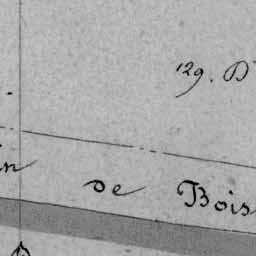 129. D
in de Bois